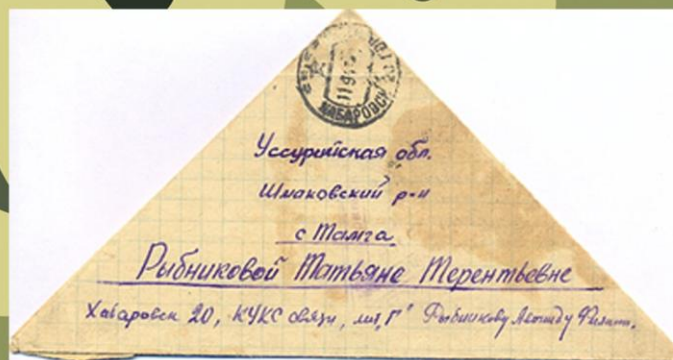 ХАБАРОВСК
Уссурийская обл.
Шмаковский р-н
с Тамга
Рыбниковой Татьяне Терентьевне
Хабаровск 20, КУКС связи, лит „Г" Рыбникову